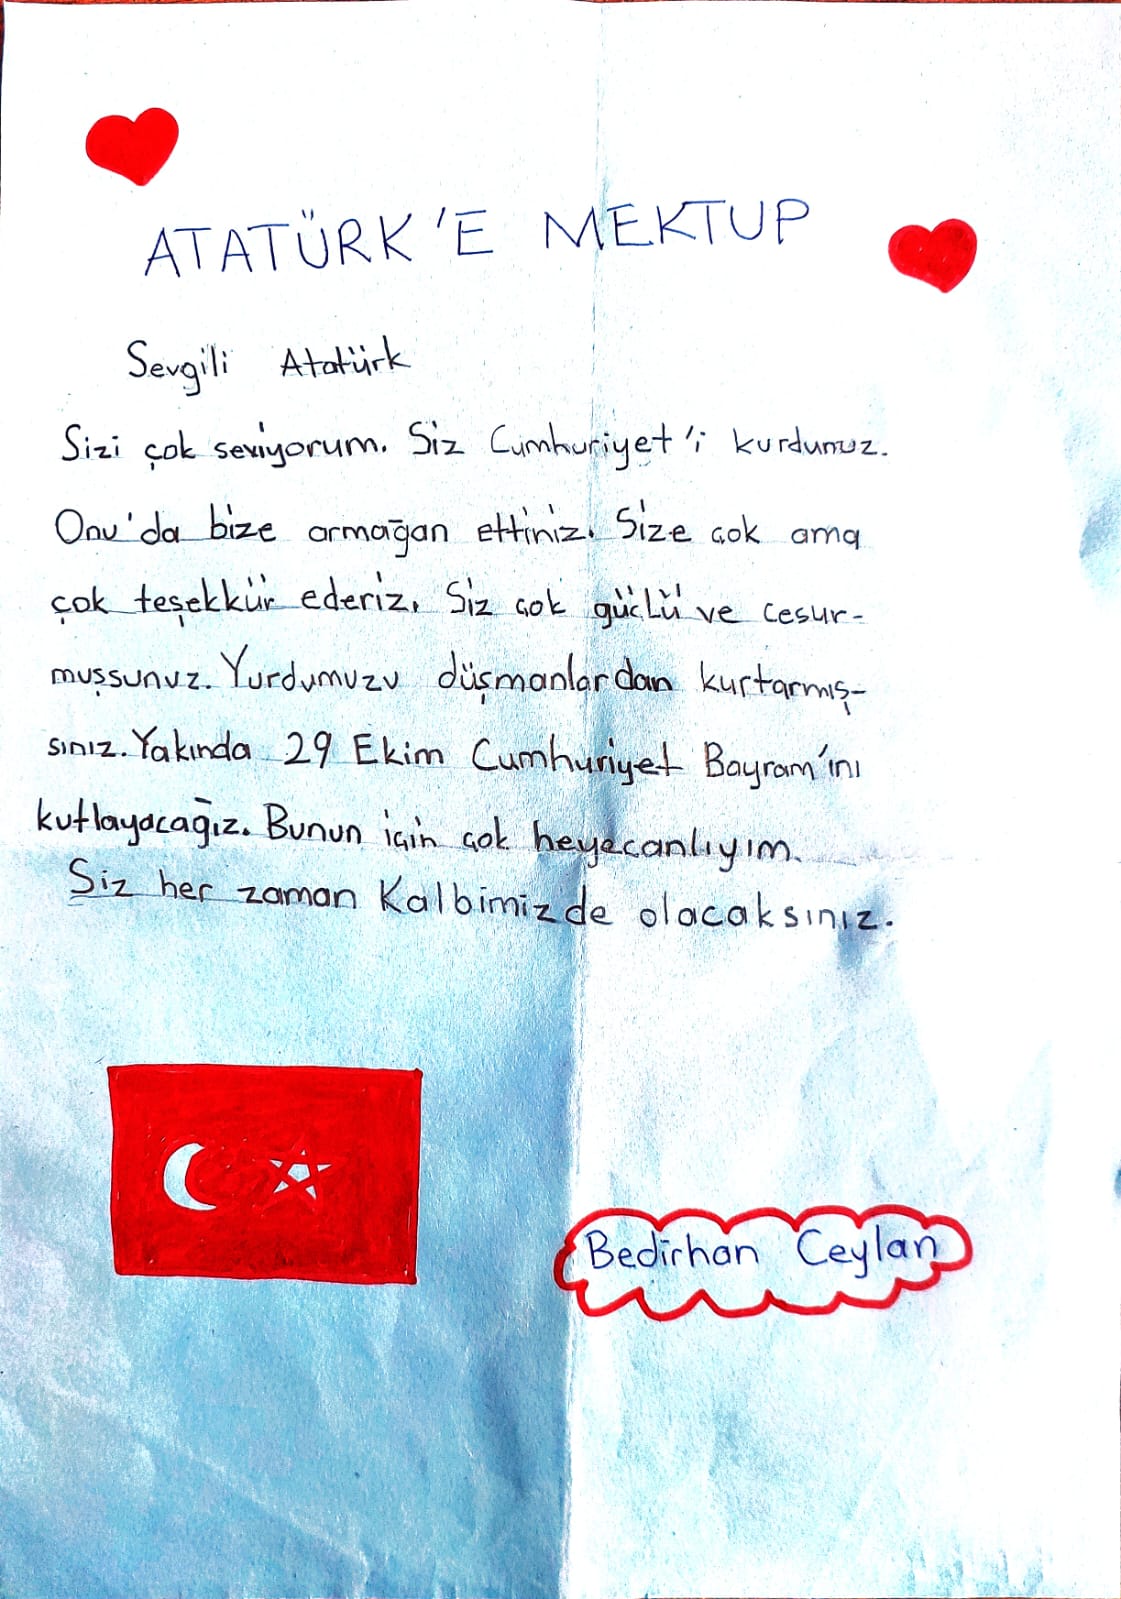 ATATÜRK'E MEKTUP
Sevgili Atatürk
Sizi çok seviyorum. Siz Cumhuriyet'i kurdunuz.
Onu'da bize armağan ettiniz. Size çok ama
çok teşekkür ederiz. Siz çok güçlü ve cesur-
muşsunuz. Yurdumuzu düşmanlardan kurtarmış-
sınız. Yakında 29 Ekim Cumhuriyet Bayram'ını
kutlayacağız. Bunun için çok heyecanlıyım.
Siz her zaman Kalbimizde olacaksınız.
Bedirhan Ceylan